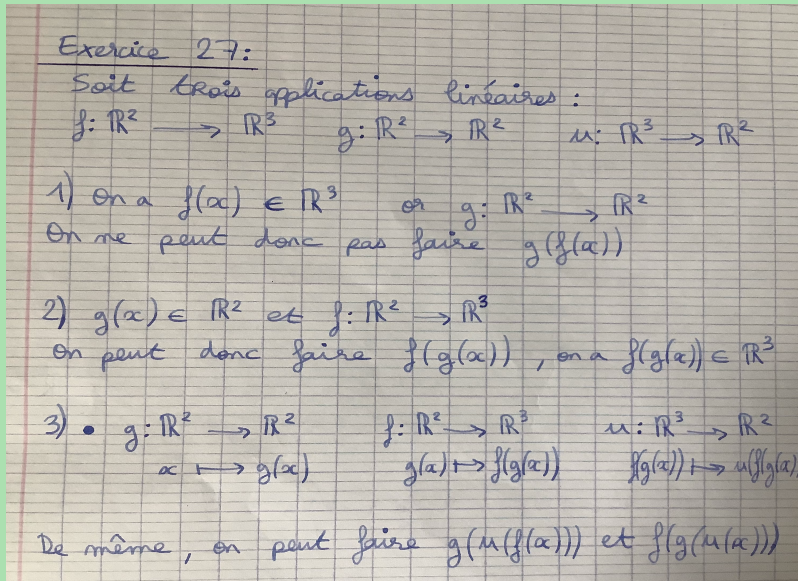 Exercice 27:
Soit trois applications linéaires :
f: ℝ² ⟶ ℝ³ g: ℝ² ⟶ ℝ² u: ℝ³ ⟶ ℝ²
1) On a f(x) ∈ ℝ³ or g: ℝ² ⟶ ℝ²
On ne peut donc pas faire g(f(x))
2) g(x) ∈ ℝ² et f: ℝ² ⟶ ℝ³
On peut donc faire f(g(x)), on a f(g(x)) ∈ ℝ³
3) • g: ℝ² ⟶ ℝ² f: ℝ² ⟶ ℝ³ u: ℝ³ ⟶ ℝ²
x ⟼ g(x) g(x) ⟼ f(g(x)) f(g(x)) ⟼ u(f(g(x)
De même, on peut faire g(u(f(x))) et f(g(u(x)))